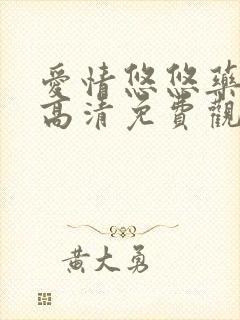 愛情悠悠藥
高清免費觀
黃大勇